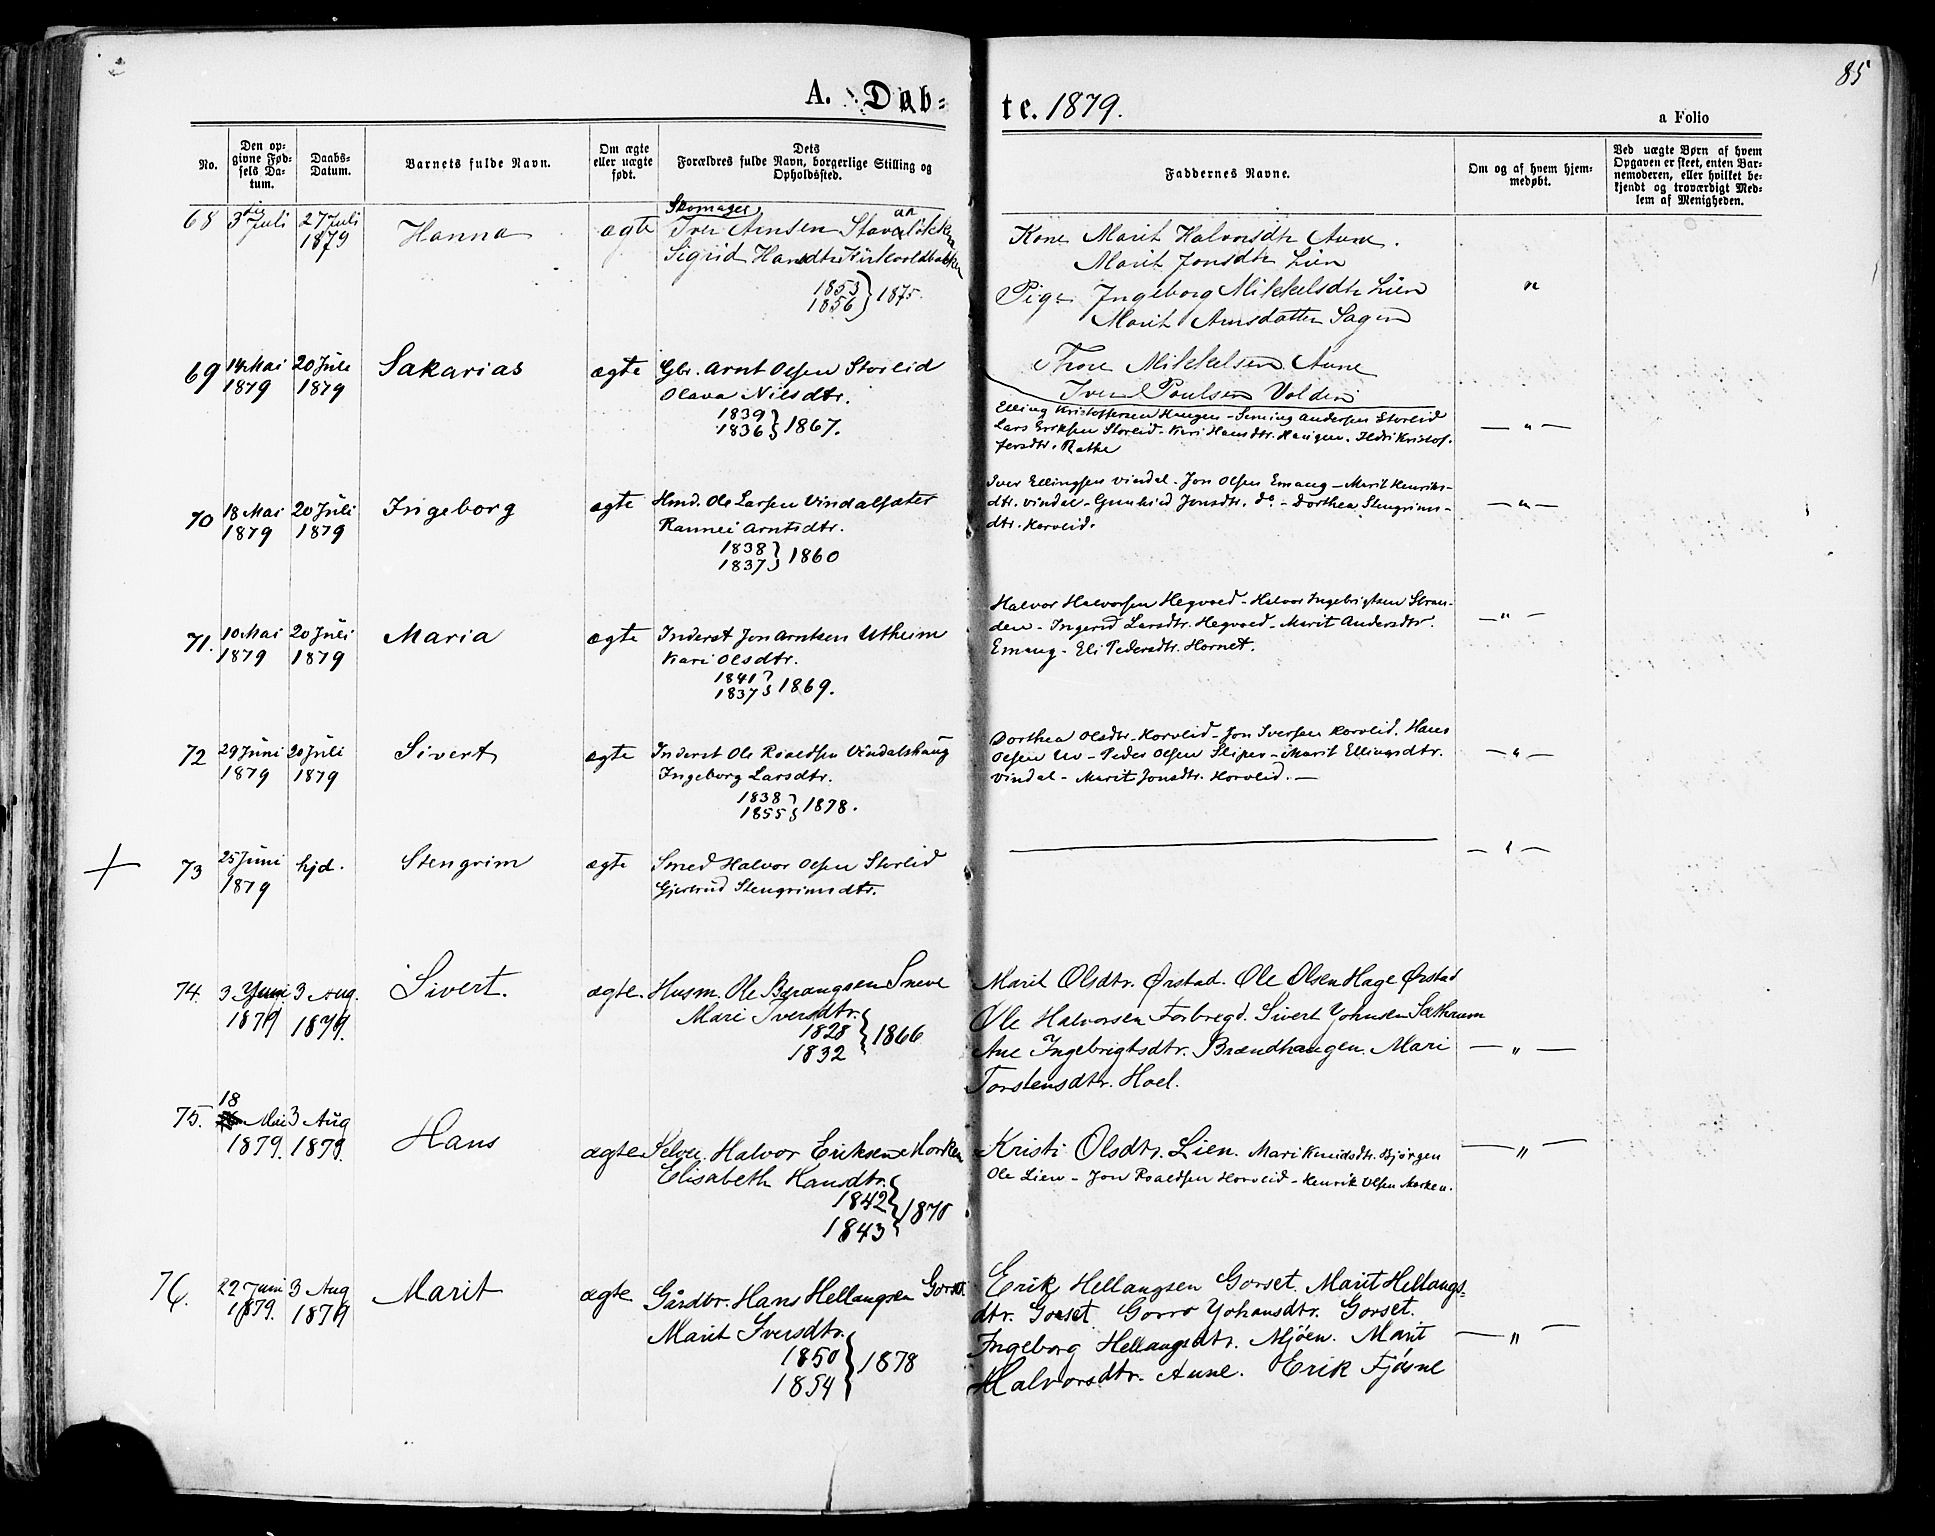 85
A. Døb=
te. 1879.
a Folio
No.
Den op-
givne Fød-
sels Da-
tum.
Daabs-
Datum.
Barnets fulde Navn.
Om ægte
eller uægte
født.
Dets
Forældres fulde Navn, borgerlige Stilling og
Opholdssted.
Faddernes Navne.
Om og af hvem hjem-
medøbt.
Ved uægte Børn af hvem
Opgaven er skeet, enten Bar-
nemoderen, eller hvilket be-
kjendt og troværdigt Med-
lem af Menigheden.
68
3die Juli
27 Juli
1879
Hanna
ægte
Skomager
Iver Arnsen
Sigrid Hansdtr Kirkvoldbakken
1853
1856 } 1875.
Kone Marit Halvorsdtr Aune.
Marit Jonsdtr Lien
Pige Ingeborg Mikkelsdtr Lien
Marit Arnsdatter Sagen
Thore Mikkelsen Aune
Iver Poulsen Volden
"
69
14 Mai
1879
20 Juli
1879
Sakarias
ægte
Gbr. Arnt Olsen Storlid
Olava Nilsdtr.
1839
1836 } 1867.
Elling Kristoffersen Haugen - Seming Andersen Storlid
Lars Eriksen Storlid - Kari Hansdtr. Haugen. Ildri Kristof-
fersdtr. Rathe
— " —
70
18 Mai
1879
20 Juli
1879
Ingeborg
ægte
Hmd. Ole Larsen Vindalsæter
Rannei Arntsdtr.
1838
1837 } 1860
Iver Ellingsen Vindal - Jon Olsen Emaug - Marit Henriks-
dtr. Vindal - Gunhild Jonsdtr. do. - Dorthea Stengrims-
dtr. Horvlid.
— " —
71.
10 Mai
1879
20 Juli
1879
Maria
ægte
Inderst Jon Arntsen Utheim
Kari Olsdtr.
1841
1837 } 1869.
Halvor Halvorsen Hegvold - Halvor Ingebrigtsen Stran-
den - Ingerid Larsdtr. Hegvold - Marit Andersdtr.
Emaug - Eli Pedersdtr. Hornet.
— " —
72
29 Juni
1879
20 Juli
1879
Sivert
ægte
Inderst Ole Roaldsen Vindalshaug
Ingeborg Larsdtr.
1838
1855 } 1878.
Dorthea Olsdtr. Horvlid - Jon Iversen Horvlid. Hans
Olsen Uv - Peder Olsen Sliper - Marit Ellingsdtr.
Vindal - Marit Jonsdtr. Horvlid. —
— " —
73
25 Juni
1879
hjd.
Stengrim
ægte
Smed Halvor Olsen Storlid
Gjertrud Stengrimsdtr.
— " —
74.
3 Juni
1879
3 Aug.
1879.
Sivert.
ægte.
Husm. Ole Bærangsen Sneve
Mari Iversdtr.
1828
1832 } 1866
Marit Olsdtr. Ørstad. Ole Olsen Hage Ørstad
Ole Halvorsen Forbregd. Sivert Johnsen Sætherum
Ane Ingebrigtsdtr. Brændhaugen. Mari
Torstensdtr. Hoel.
— " —
75.
18
Mai
1879.
3 Aug
1879.
Hans
ægte
Selve. Halvor Eriksen Morken
Elisabeth Hansdtr.
1842
1843 } 1870
Kristi Olsdtr. Lien. Mari Knudsdtr. Bjørgen
Ole Lien - Jon Roaldsen Horvlid - Henrik Olsen Morken.
— " —
76.
22 Juni
1879.
3 Aug
1879
Marit
ægte
Gårdbr. Hans Hellangsen Gorset.
Marit Iversdtr.
1850
1854 } 1878
Erik Hellangsen Gorset. Marit Hellangs-
dtr. Gorset. Gorro Johansdtr. Gorset.
Ingeborg Hellangsdtr. Mjöen. Marit
Halvorsdtr. Aune. Erik Fjøsne
— " —